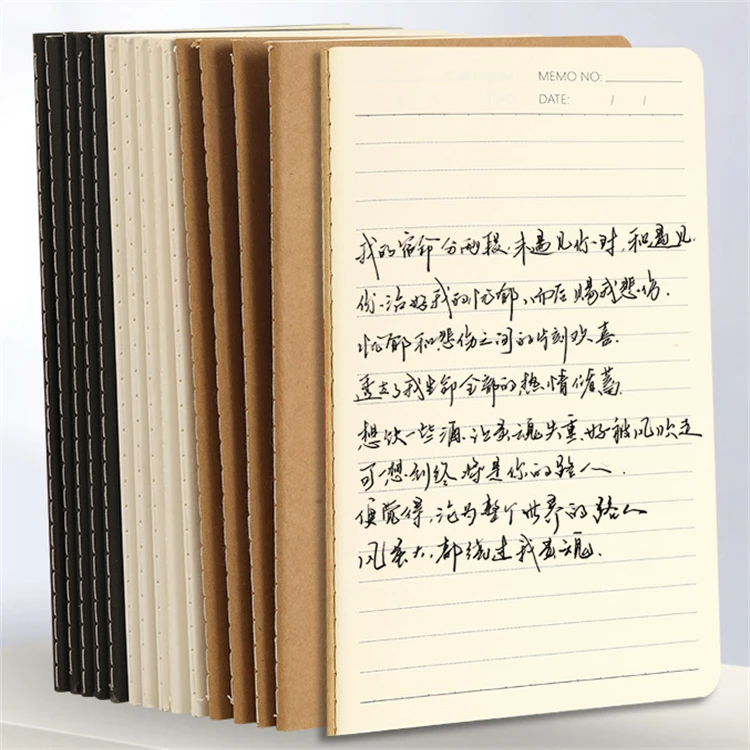 MEMO NO:
DATE: / /
我的宿命分两段,未遇见你时,和遇见
你治好我的忧郁,而后赐我悲伤.
忧郁和悲伤之间的片刻欢喜.
透支了我生命全部的热情储蓄.
想饮一些酒,让灵魂失重,好被风吹走
可一想到终将是你的路人.
便觉得,沦为整个世界的路人
风虽大,都绕过我灵魂.